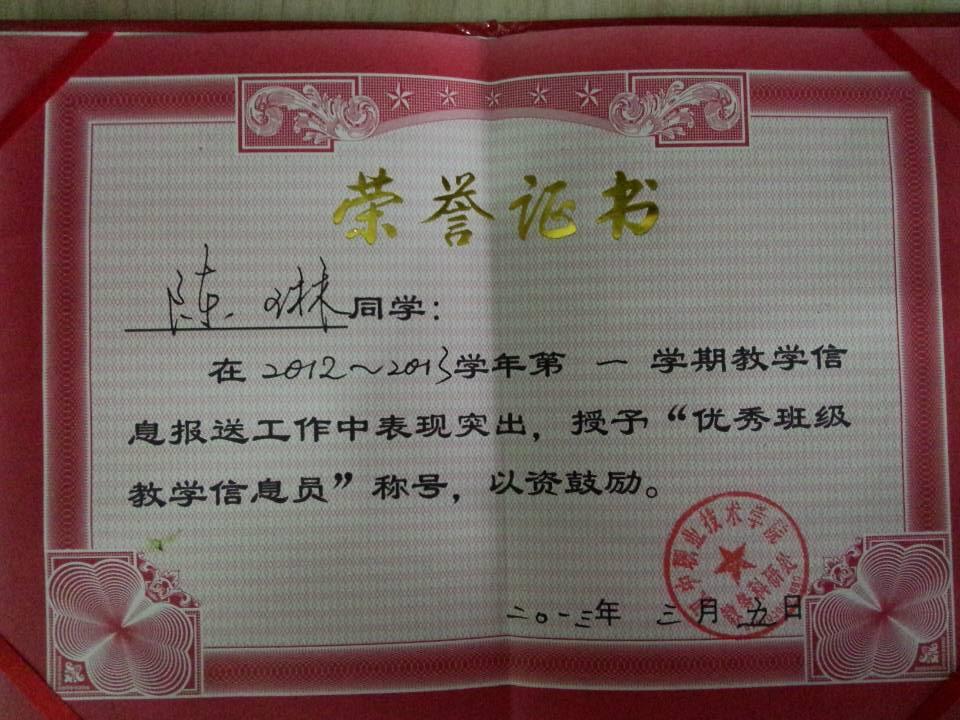 荣誉证书
陈琳同学：
在2012～2013学年第一学期教学信
息报送工作中表现突出，授予“优秀班级
教学信息员”称号，以资鼓励。
职业技术学院
教务科研处
二〇一三年 三月 五日